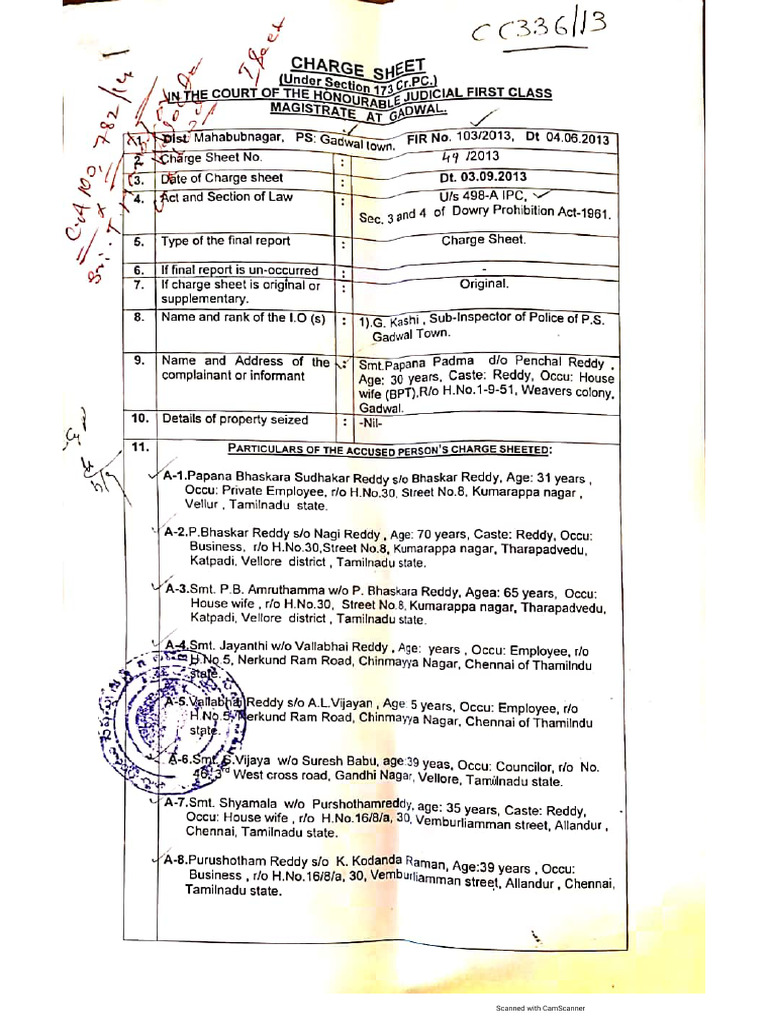 CC336/13
CHARGE SHEET
(Under Section 173 Cr.PC.)
IN THE COURT OF THE HONOURABLE JUDICIAL FIRST CLASS
MAGISTRATE AT GADWAL.
1. Dist Mahabubnagar, PS: Gadwal town. FIR No. 103/2013, Dt 04.06.2013
2. Charge Sheet No. : 49 /2013
3. Date of Charge sheet : Dt. 03.09.2013
4. Act and Section of Law : U/s 498-A IPC,
Sec. 3 and 4 of Dowry Prohibition Act-1961.
5. Type of the final report : Charge Sheet.
6. If final report is un-occurred : -
7. If charge sheet is original or : Original.
supplementary.
8. Name and rank of the I.O (s) : 1).G. Kashi , Sub-Inspector of Police of P.S.
Gadwal Town.
9. Name and Address of the : Smt.Papana Padma d/o Penchal Reddy ,
complainant or informant Age: 30 years, Caste: Reddy, Occu: House
wife (BPT),R/o H.No.1-9-51, Weavers colony,
Gadwal.
10. Details of property seized : -Nil-
11. PARTICULARS OF THE ACCUSED PERSON'S CHARGE SHEETED:
A-1.Papana Bhaskara Sudhakar Reddy s/o Bhaskar Reddy, Age: 31 years ,
Occu: Private Employee, r/o H.No.30, Street No.8, Kumarappa nagar ,
Vellur , Tamilnadu state.
A-2.P.Bhaskar Reddy s/o Nagi Reddy , Age: 70 years, Caste: Reddy, Occu:
Business, r/o H.No.30,Street No.8, Kumarappa nagar, Tharapadvedu,
Katpadi, Vellore district , Tamilnadu state.
A-3.Smt. P.B. Amruthamma w/o P. Bhaskara Reddy, Agea: 65 years, Occu:
House wife , r/o H.No.30, Street No.8, Kumarappa nagar, Tharapadvedu,
Katpadi, Vellore district , Tamilnadu state.
A-4.Smt. Jayanthi w/o Vallabhai Reddy , Age: years , Occu: Employee, r/o
H.No.5, Nerkund Ram Road, Chinmayya Nagar, Chennai of Thamilndu
state.
A-5.Vallabhai Reddy s/o A.L.Vijayan , Age 5 years, Occu: Employee, r/o
H.No.5, Nerkund Ram Road, Chinmayya Nagar, Chennai of Thamilndu
state.
A-6.Smt. S.Vijaya w/o Suresh Babu, age:39 yeas, Occu: Councilor, r/o No.
46, 3rd West cross road, Gandhi Nagar, Vellore, Tamilnadu state.
A-7.Smt. Shyamala w/o Purshothamreddy, age: 35 years, Caste: Reddy,
Occu: House wife , r/o H.No.16/8/a, 30, Vemburliamman street, Allandur ,
Chennai, Tamilnadu state.
A-8.Purushotham Reddy s/o K. Kodanda Raman, Age:39 years , Occu:
Business , r/o H.No.16/8/a, 30, Vemburliamman street, Allandur , Chennai,
Tamilnadu state.
Scanned with CamScanner